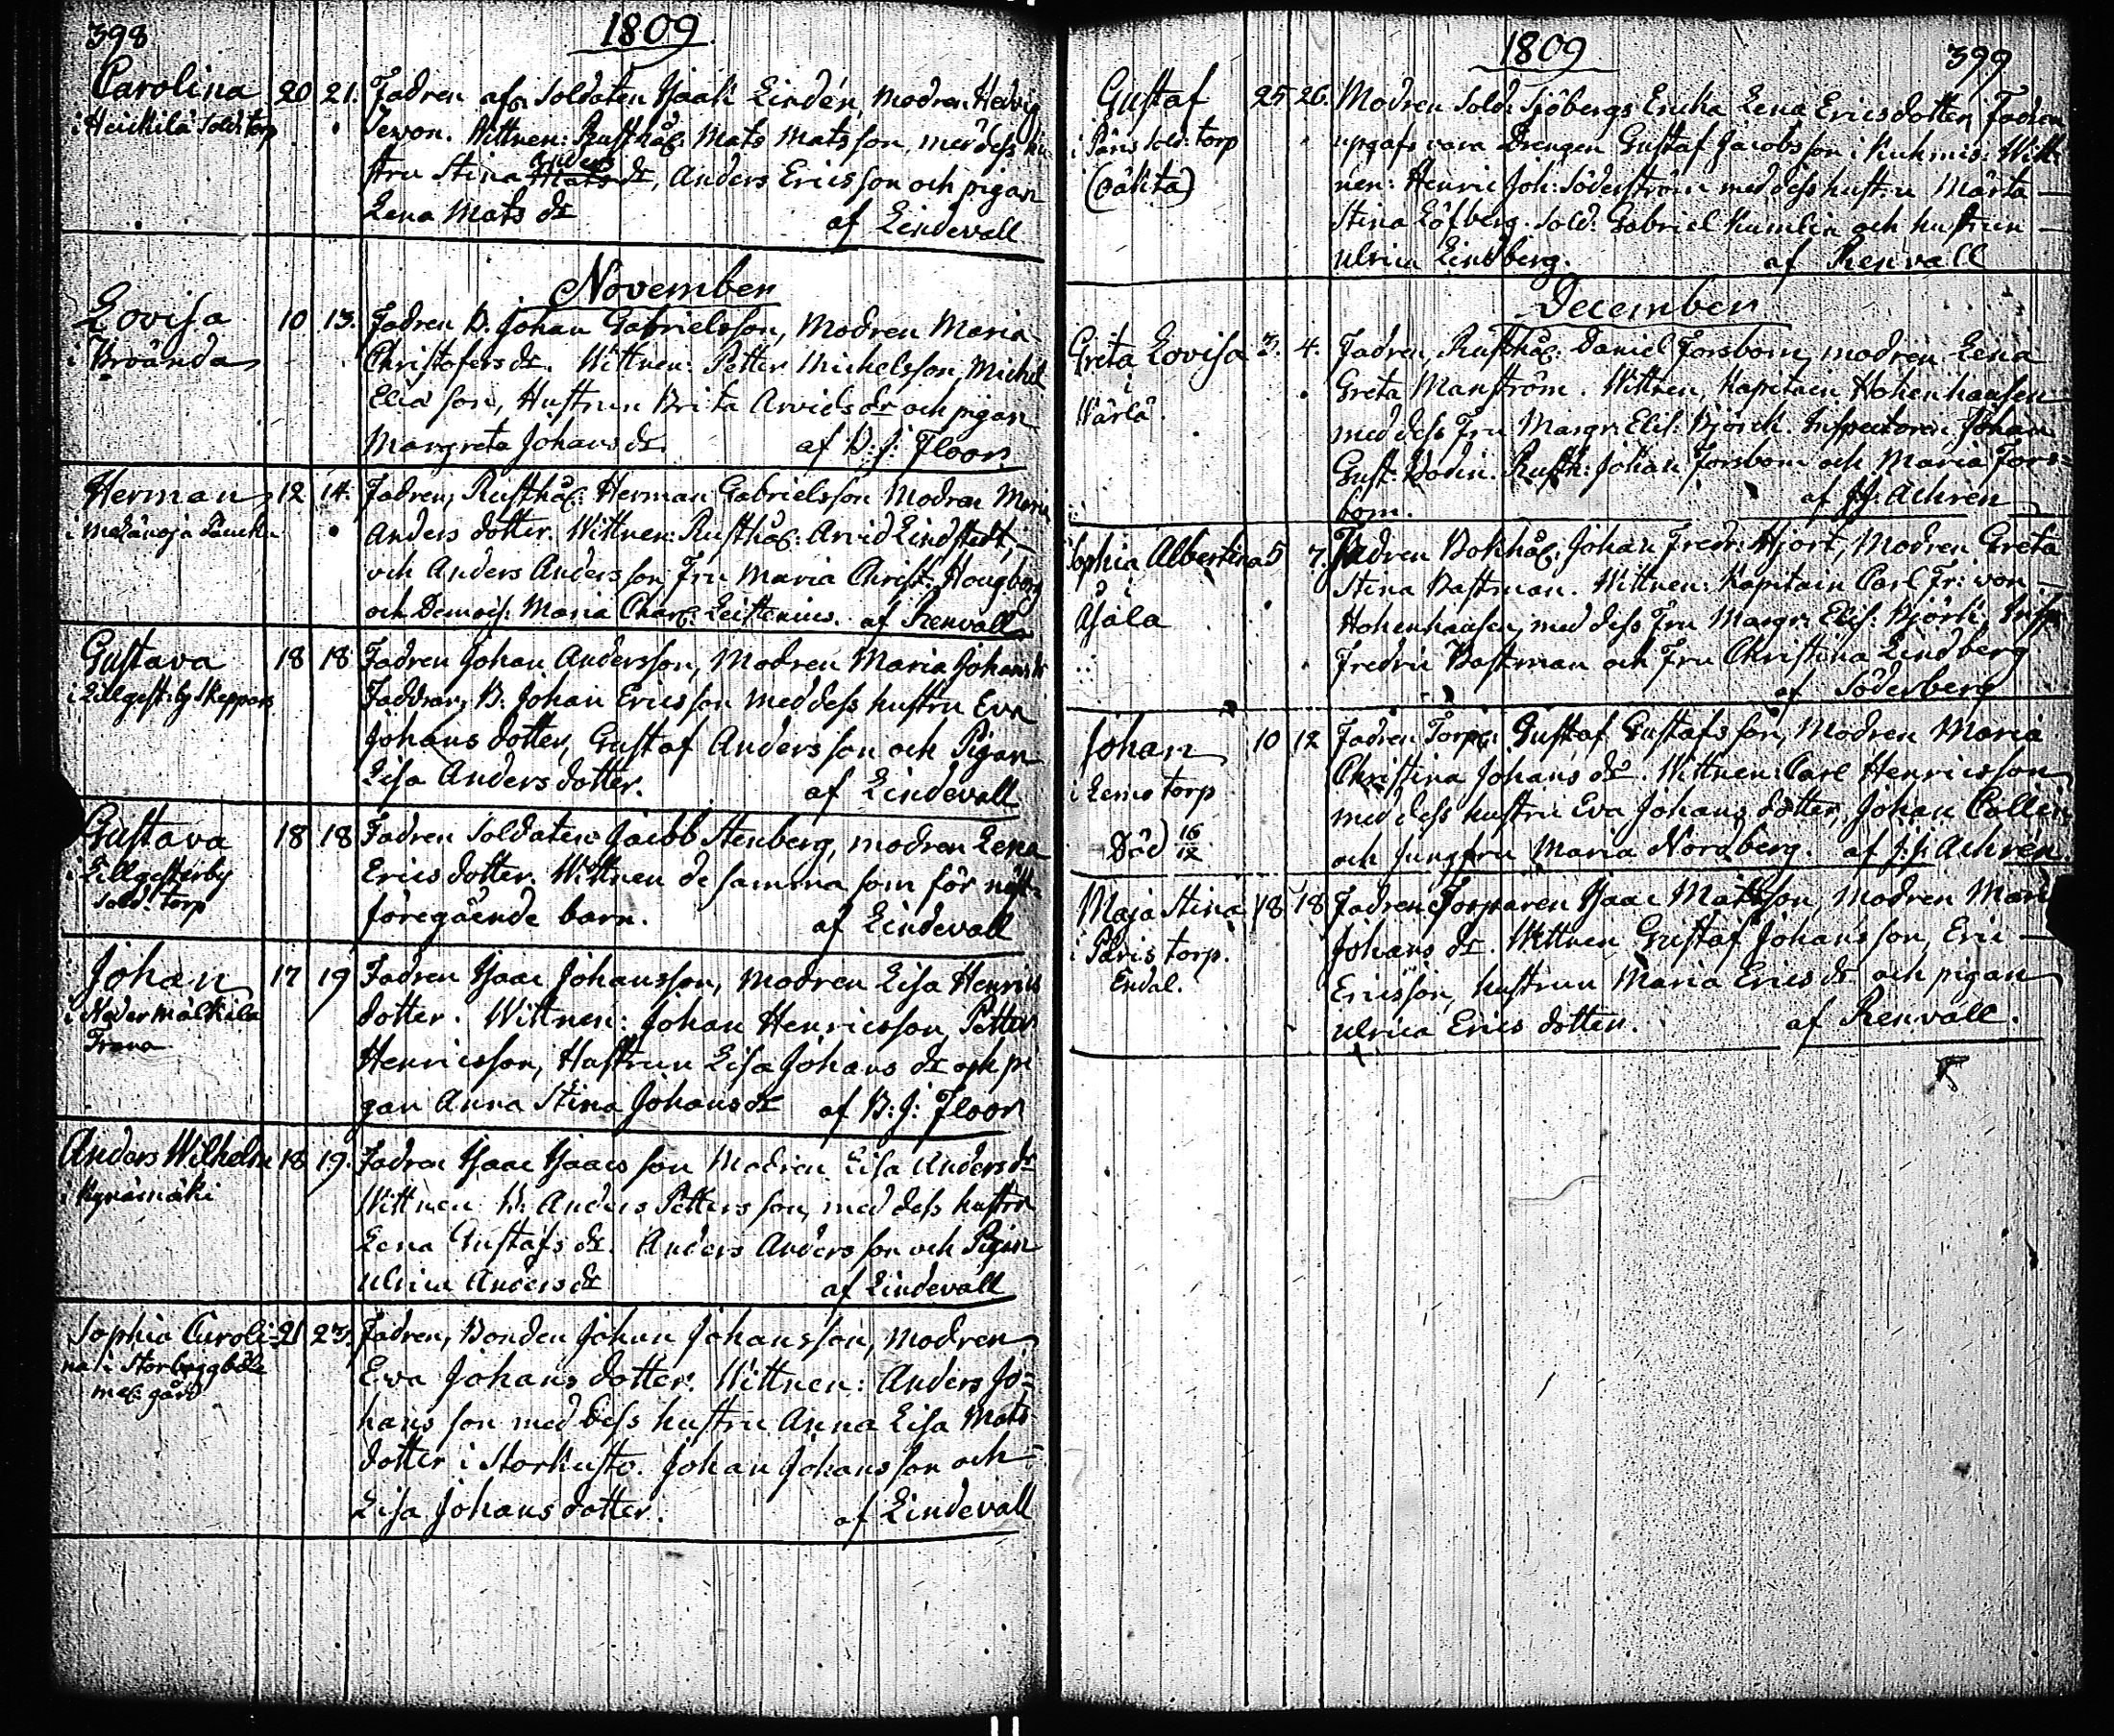 398
1809
Carolina 20 21. Fadren afsk. Soldaten Isaak Lindén, Modren Hedvig
i Heickilä Sold: torp
Wittnen: Rusthål: Mats Matsson, med dess hu-
stru Stina Mats Anders dr, Anders Ericsson och pigan
Lena Mats dr af Lindevall
November
Lovisa 10 13. Fadren B. Johan Gabrielsson, Modren Maria
i Broända Christofers dr. Wittnen: Petter Michelsson, Michel
Eliasson, Hustrun Brita Arvids dr och pigan
Margreta Johans dr. af B: J: Floor.
Herman 12 14. Fadren, Rusthål: Herman Gabrielsson Modren Maria
Anders dotter. Wittnen: Rusthål: Arvid Lindstedt,
och Anders Andersson, Fru Maria Christ: Hougberg
och Demois: Maria Charl: Leistenius. af Renvall
Gustava 18 18 Fadren Johan Andersson, Modren Maria Johans dr
i Lillgest:by Skeppars Faddrar, B. Johan Ericsson med dess hustru Eva
Johans dotter, Gustaf Andersson och Pigan
Lisa Anders dotter. af Lindevall
Gustava 18 18 Fadren Soldaten Jacob Stenberg, modren Lena
i Lillgesterby Erics dotter. Wittnen de samma som för näst-
Sold: torp föregående barn. af Lindevall
Johan 17 19 Fadren Isaac Johansson, Modren Lisa Henrics
i Neder Mälkilä dotter. Wittnen: Johan Henricsson, Petter
Frana Henricsson, Hustrun Lisa Johans dr och pi
gan Anna Stina Johans dr af B: J: Floor
Anders Wilhelm 18 19. Fadren Isaac Isaacsson Modren Lisa Anders dr
i Kyrämäki Wittnen B. Anders Pettersson, med dess hustru
Lena Gustafs dr. Anders Andersson och Pigan
Ulrica Anders dr af Lindevall
Sophia Caroli- 21 23. Fadren, Bonden Johan Johansson, modren
na i Storbeggböle Eva Johans dotter. Wittnen: Anders Jo-
mel: gård hansson med dess hustru Anna Lisa Mats
dotter i Storkusto. Johan Johansson och
Lisa Johans dotter. af Lindevall
1809
399
Gustaf 25 26. Modren Sold: Sjöbergs Encka Lena Ericsdotter, Fadren
i Päris Sold: torp upgafs vara Drengen Gustaf Jacobsson i Kukmis: Witt-
(oäkta) nen: Henric Joh: Söderström med dess hustru Märta
Stina Löfberg. Sold: Gabriel Kumlin och hustrun
Ulrica Lindberg. af Renvall
December
Greta Lovisa 3. 4. Fadren, Rusthål: Daniel Forsbom, modren Lena
i Greta Manström. Wittnen, Kapitain Hohenhausen
Wärlä. med dess Fru Margr: Elis: Björck. Inspectoren Johan
Gust: Bodin. Rusth: Johan Forsbom och Maria Fors-
bom. af J: J: Achrén
Sophia Albertina 5 7. Fadren Bokhål: Johan Fredr: Hjort, Modren Greta
i Stina Bastman. Wittnen: Kapitain Carl Fr: von
Ajala Hohenhausen, med dess Fru Margr: Elis: Björk, Insp:
Fredric Bastman och Fru Christina Lindberg
af Söderberg
Johan 10 12 Fadren Torp: Gustaf Gustafsson, Modren Maria
i Lemo torp Christina Johans dr. Wittnen: Carl Henricsson
med dess hustru Eva Johans dotter, Johan Collin
Död 16/12 och Jungfru Maria Nordberg. af J: J: Achrén.
Maja Stina 18 18 Fadren Torparen Isaac Matsson, Modren Maria
i Päris torp. Johans dr. Wittnen Gustaf Johansson, Eric
Endal. Ericsson, hustrun Maria Erics dr och pigan
Ulrica Erics dotter. af Renvall.